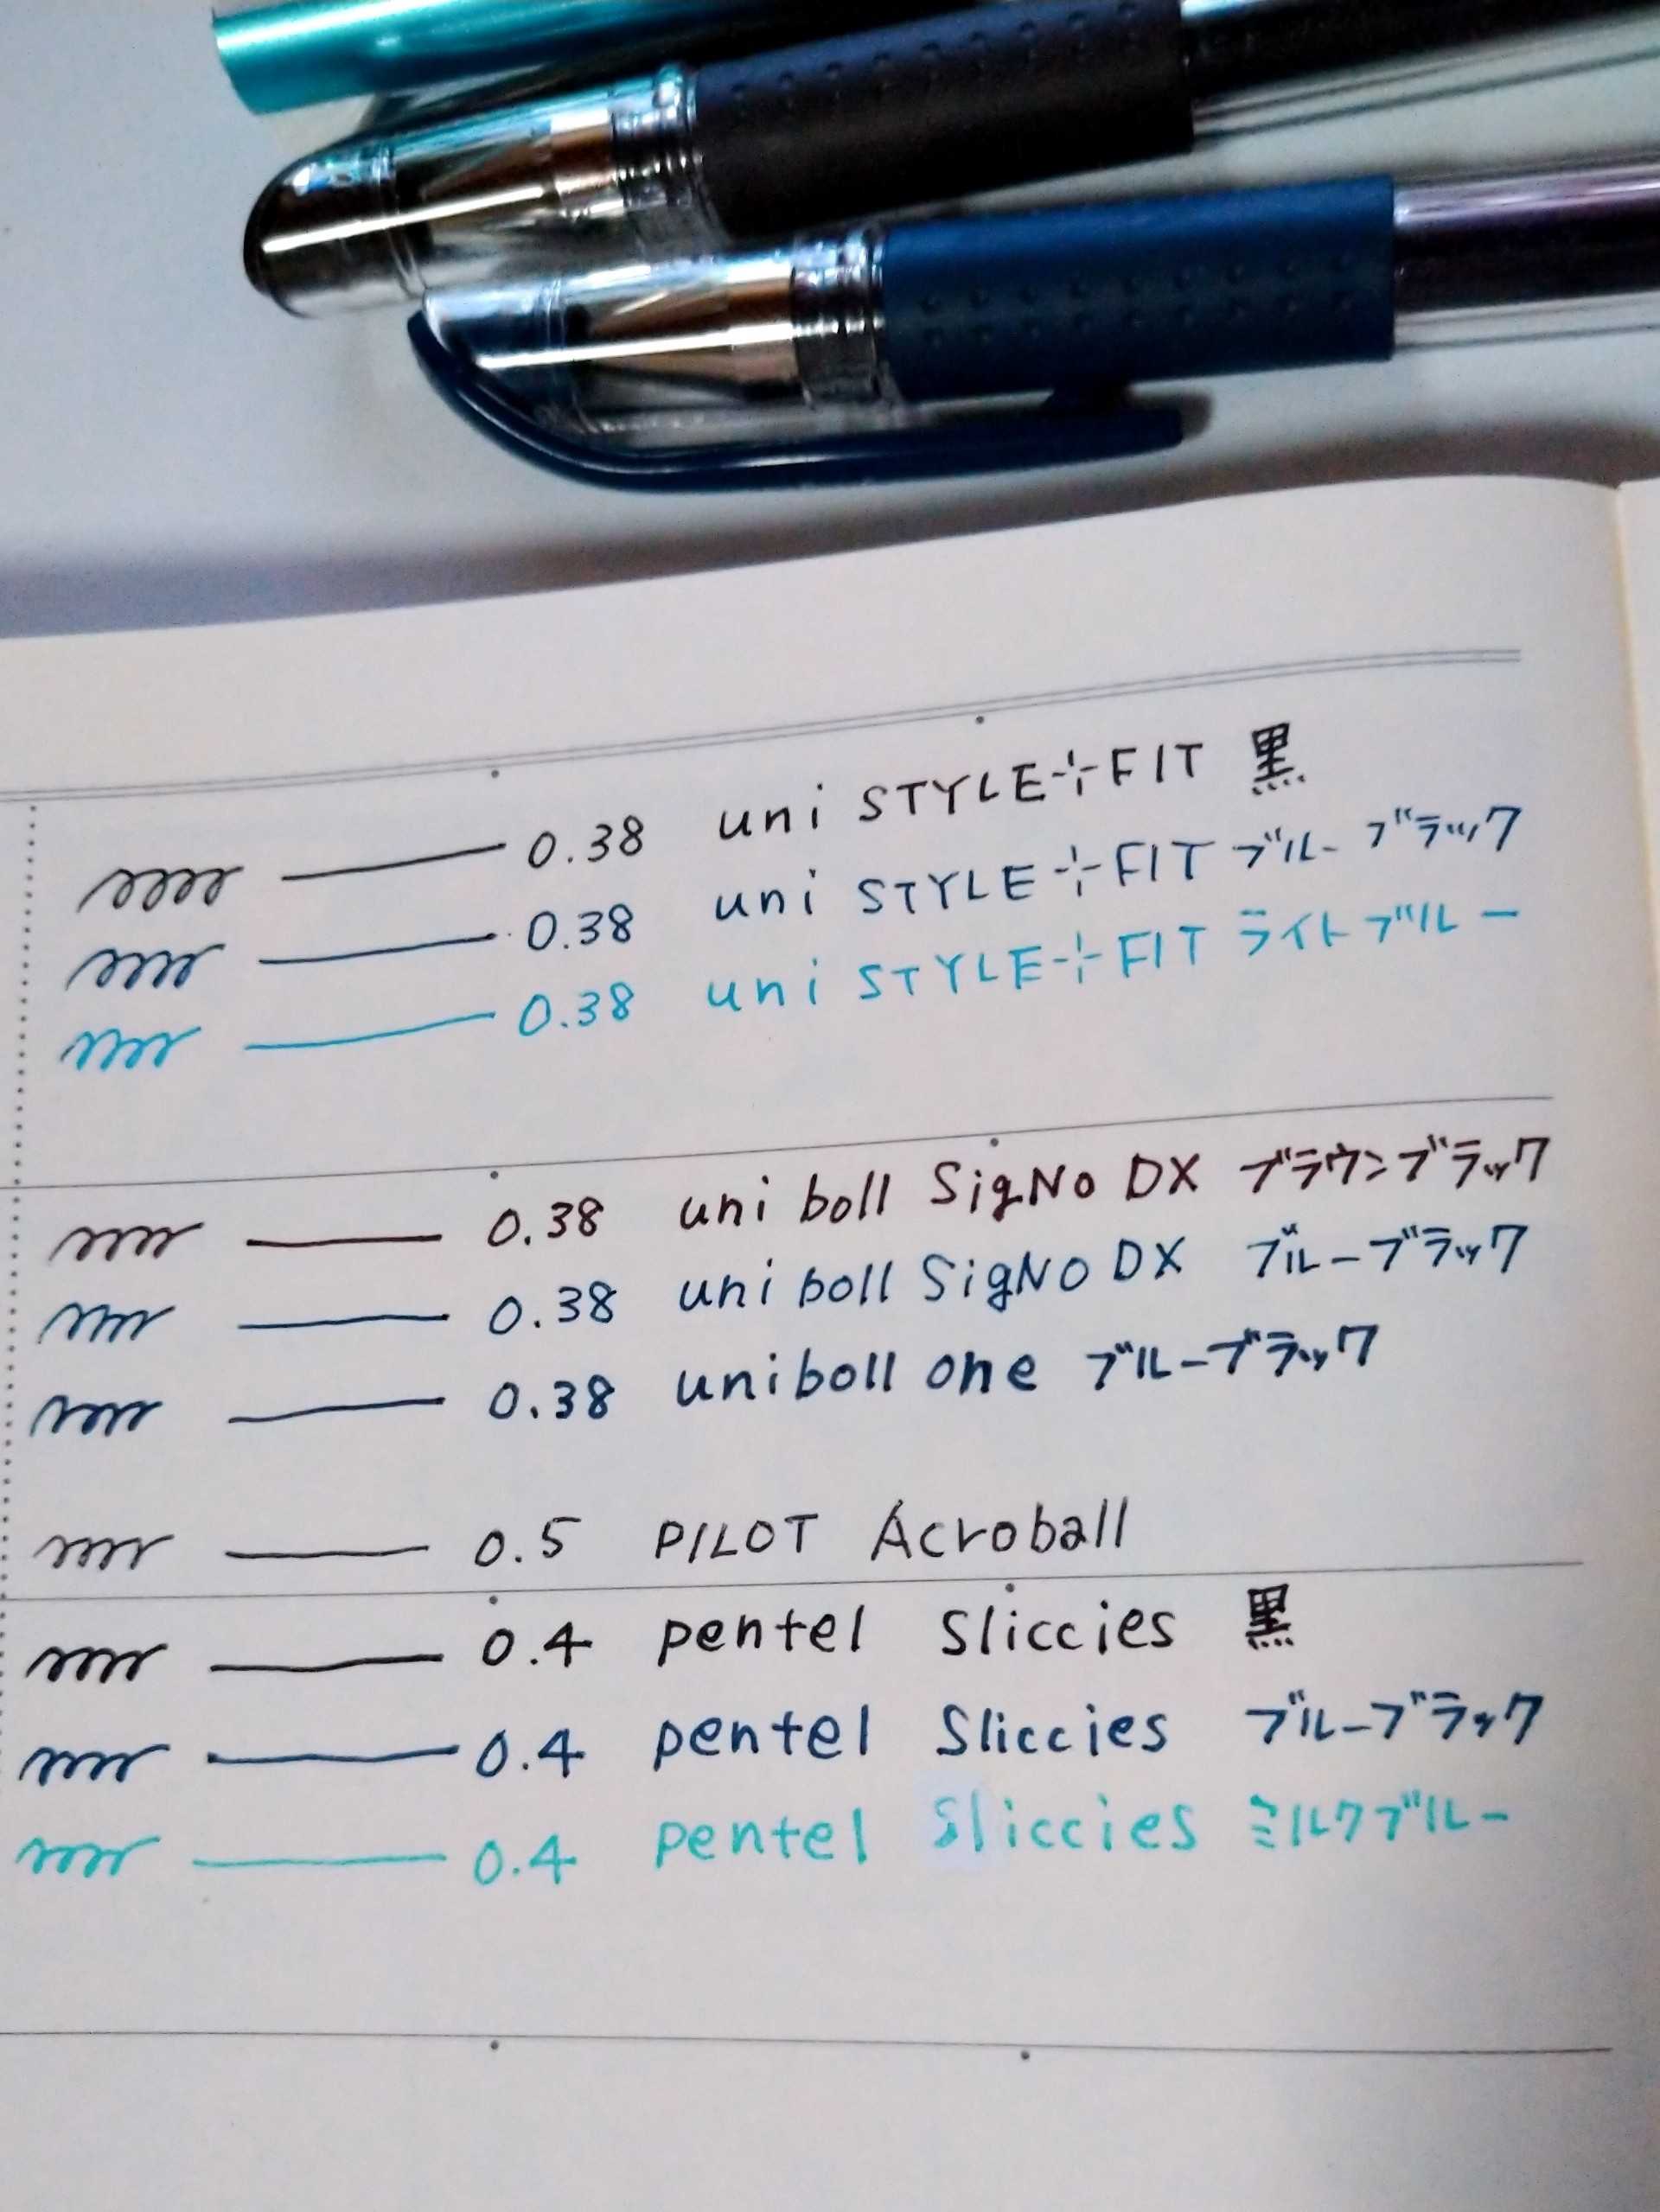 0.38 uni STYLE-¦-FIT 黒
0.38 uni STYLE-¦-FIT ブルーブラック
0.38 uni STYLE-¦-FIT ライトブルー
0.38 uni boll SigNo DX ブラウンブラック
0.38 uni boll SigNO DX ブルーブラック
0.38 uniboll one ブルーブラック
0.5 PILOT Acroball
0.4 pentel Sliccies 黒
0.4 pentel Sliccies ブルーブラック
0.4 pentel Sliccies ミルクブルー